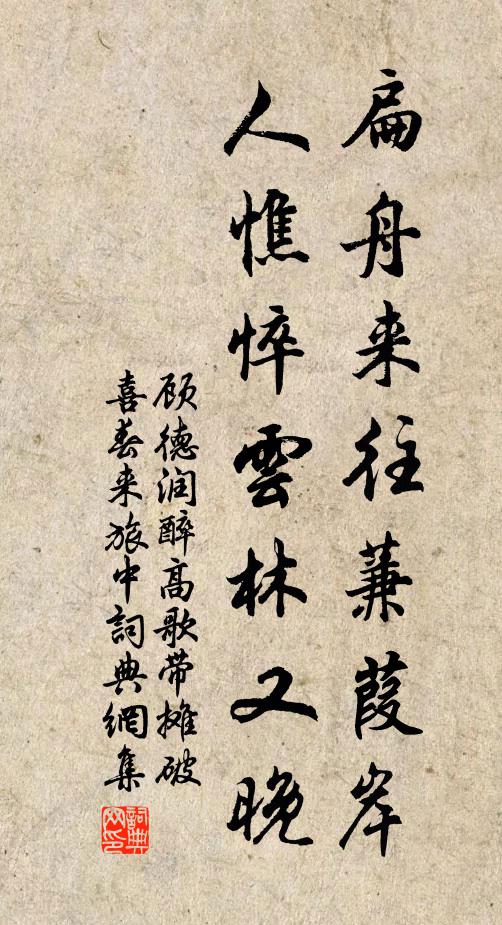 扁舟来往蒹葭岸
人憔悴雲林又晚
顾德润醉高歌带摊破
喜春来旅中詞典網集
詞典网印